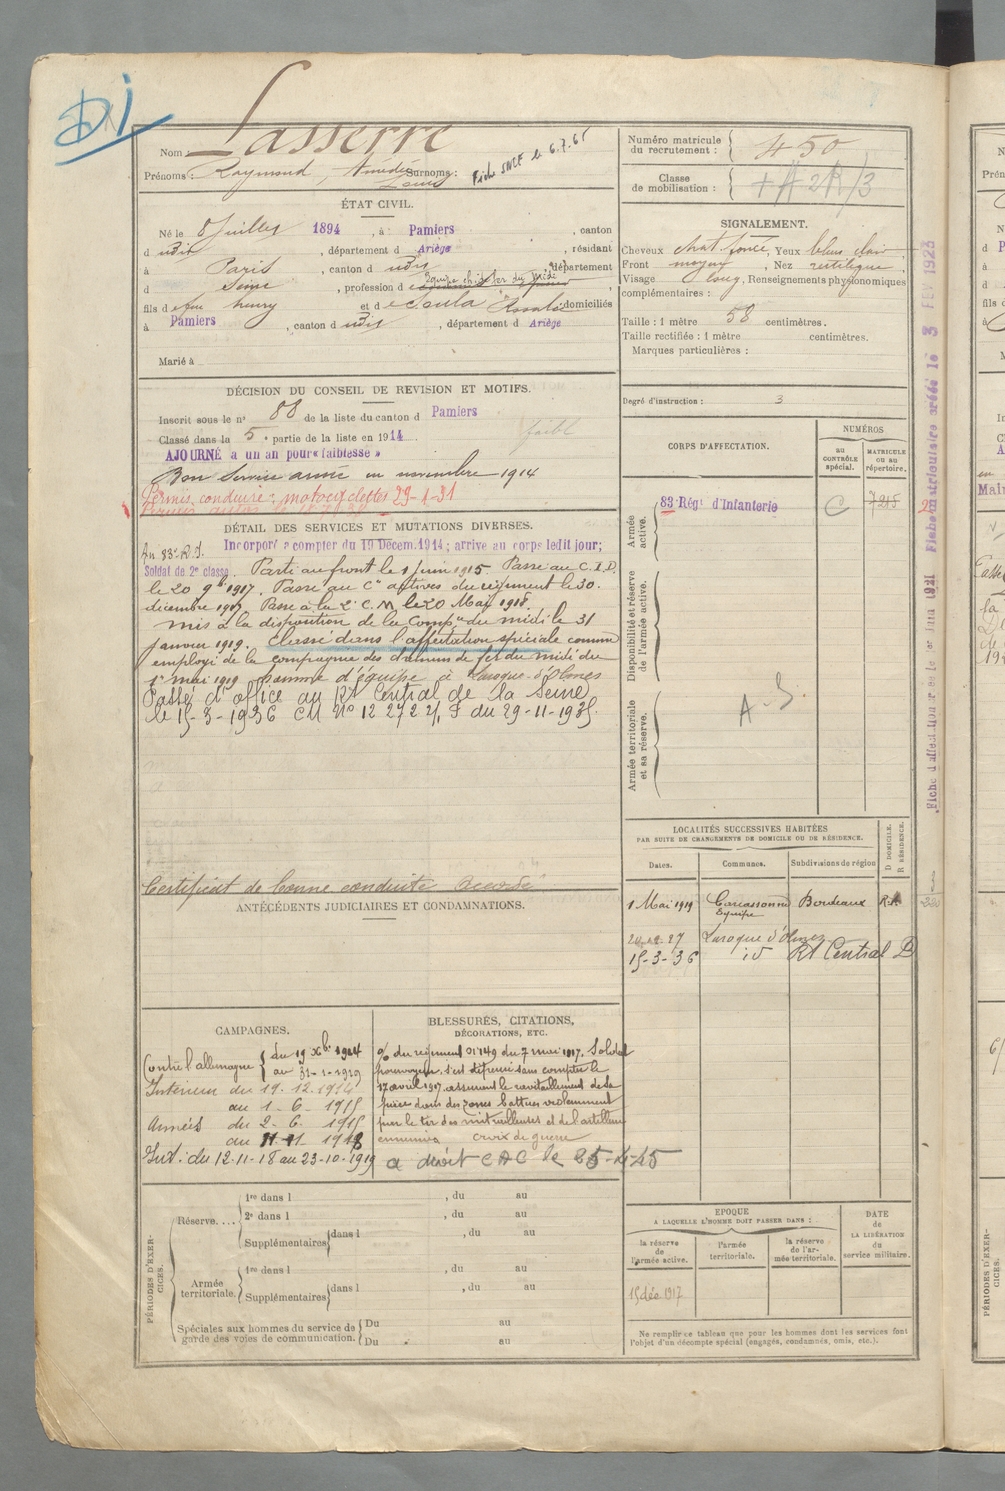 Di
Nom : Lasserre
Prénoms : Raymond, Amédée Surnoms :
Louis
Fiche SNCF le 6.7.65
ÉTAT CIVIL.
Né le 8 Juillet 1894, à Pamiers, canton
d udit, département d Ariège, résidant
à Paris, canton d udit, département
d Seine, profession d
Equipe chis fer du Midi
fils d e feu henry et d e Soula Rosalie domiciliés
à Pamiers, canton d udit, département d Ariège
Marié à
DÉCISION DU CONSEIL DE REVISION ET MOTIFS.
Inscrit sous le n° 88 de la liste du canton d Pamiers
Classé dans la 5e partie de la liste en 1914
AJOURNÉ à un an pour « faiblesse »
Bon Service armé en novembre 1914
Permis conduire : motocyclettes 29-1-31
DÉTAIL DES SERVICES ET MUTATIONS DIVERSES.
Au 83e R.I. Incorporé à compter du 19 Décem. 1914 ; arrivé au corps ledit jour ;
Soldat de 2e classe. Parti au front le 1 Juin 1915 Passé au C.I.D.
le 20 9bre 1917. Passé au Cie actives du régiment le 30.
décembre 1917. Passé à la 2e C.M. le 20 Mai 1918.
mis à la disposition de la Compie du midi le 31
Janvier 1919. Classé dans l'affectation spéciale comme
employé de la compagnie des chemins de fer du midi du
1er mai 1919 homme d'équipe à Laroque-d'Olmes
Passé d'office au Rt Central de la Seine
le 15-3-1936 CM No 12 272 2/1 S du 29-11-1935.
Certificat de bonne conduite Accordé
ANTÉCÉDENTS JUDICIAIRES ET CONDAMNATIONS.
CAMPAGNES.
Contre l'allemagne { du 19 Xbre 1914
au 31-1-1919
Intérieur du 19.12.1914
au 1-6-1915
Armées du 2-6-1915
au 11-11-1918
Int. du 12-11-18 au 23-10-1919
BLESSURES, CITATIONS,
DÉCORATIONS, ETC.
% du régiment n°149 du 7 mai 1917. Soldat
pourvoyeur, s'est dépensé sans compter le
17 avril 1917. assurant le ravitaillement de sa
pièce dans des zones battues violemment
par le tir des mitrailleuses et de l'artillerie
ennemie croix de guerre
a droit CAC le 25-4-45
PÉRIODES D'EXERCICES.
Réserve.... { 1re dans l , du au
2e dans l , du au
Supplémentaires { dans l , du au
Armée territoriale. { 1re dans l , du au
Supplémentaires { dans l , du au
Spéciales aux hommes du service de { Du au
garde des voies de communication. { Du au
Numéro matricule
du recrutement : 450
Classe
de mobilisation :
SIGNALEMENT.
Cheveux chat. foncé, Yeux bleu clair
Front moyen, Nez rectiligne,
Visage long, Renseignements physionomiques
complémentaires :
Taille : 1 mètre 58 centimètres.
Taille rectifiée : 1 mètre centimètres.
Marques particulières :
Degré d'instruction : 3
CORPS D'AFFECTATION.
NUMÉROS
AU CONTRÔLE spécial.
MATRICULE OU AU répertoire.
Armée active.
83 Régt d'Infanterie C 7215
Disponibilité et réserve de l'armée active.
Armée territoriale et sa réserve.
A-S.
LOCALITÉS SUCCESSIVES HABITÉES
PAR SUITE DE CHANGEMENTS DE DOMICILE OU DE RÉSIDENCE.
Dates. Communes. Subdivisions de région
D DOMICILE.
R RÉSIDENCE.
1 Mai 1919 Carcassonne Bordeaux R.
Equipe
Laroque d'Olmes
15-3-36 id Rt Central D
EPOQUE
A LAQUELLE L'HOMME DOIT PASSER DANS :
la réserve de l'armée active.
l'armée territoriale.
la réserve de l'armée territoriale.
DATE de LA LIBÉRATION du service militaire.
15 déc 1917
Ne remplir ce tableau que pour les hommes dont les services font
l'objet d'un décompte spécial (engagés, condamnés, omis, etc.).
Fiche matriculaire créée le 3 FEV 1923